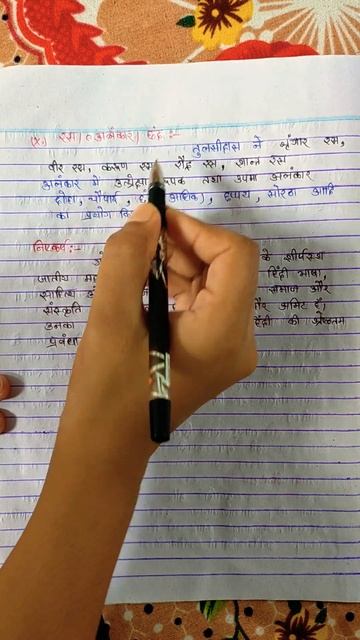 (x) रस, अलंकार, छंद :-
तुलसीदास ने श्रृंगार रस,
वीर रस, करुण रस, रौद्र रस, शान्त रस
अलंकार में उत्प्रेक्षा रूपक तथा उपमा अलंकार
दोहा, चौपाई, छप्पय, सोरठा आदि
का प्रयोग
निष्कर्ष :-
के शीर्षस्थ
जातीय हिंदी भाषा,
साहित्य समाज और
संस्कृति और अमिट है,
उनका हिंदी की श्रेष्ठतम
प्रबंधा